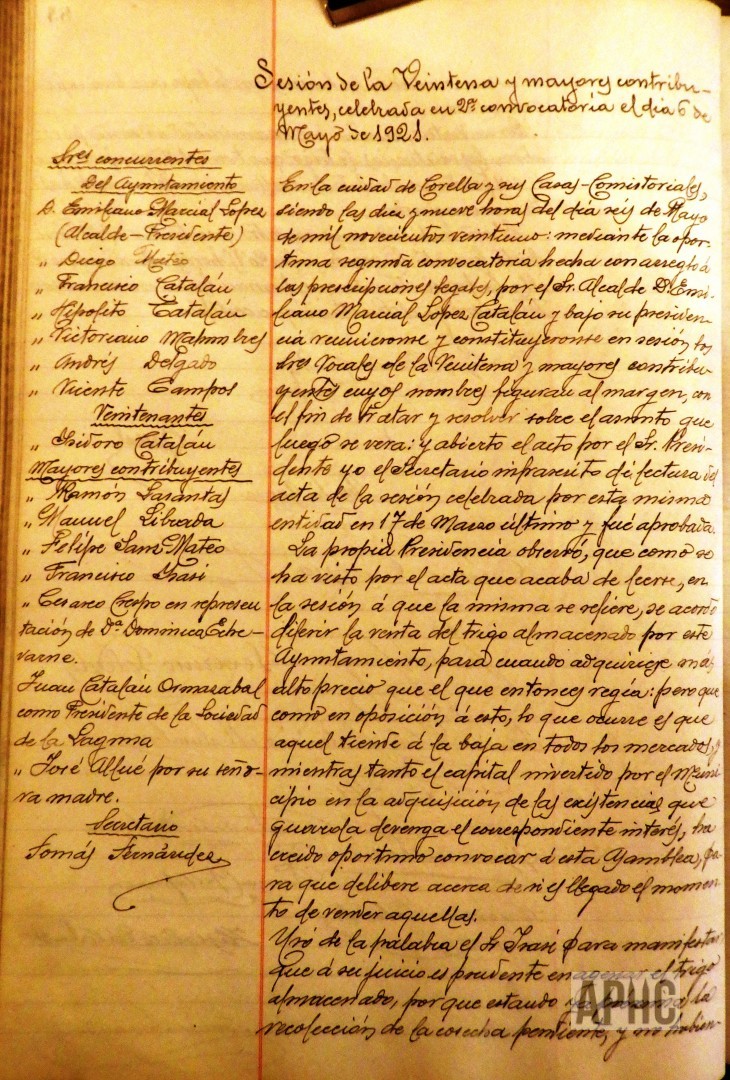 Sesión de la Veintena y mayores contribu-
yentes, celebrada en 2ª convocatoria el dia 6 de
Mayo de 1921.
Sres concurrentes
Del Ayuntamiento
D. Emiliano Marcial Lopez
(Alcalde-Presidente)
„ Diego Mateo
„ Francisco Catalán
„ Hipolito Catalán
„ Victoriano Mapmbres
„ Andrés Delgado
„ Vicente Campos
Veintenantes
„ Isidoro Catalán
Mayores contribuyentes
„ Ramón Sarantas
„ Manuel Librada
„ Felipe Sanz Mateo
„ Francisco Irasi
„ Cesareo Crespo en represen
tación de Dª Dominica Eche-
varne.
Juan Catalán Ormazabal
como Presidente de la Sociedad
de la Laguna
„ José Allué por su seño-
ra madre.
Secretario
Tomás Fernández
En la ciudad de Corella y sus Casas-Comistoriales,
siendo las diez y nueve horas del dia seis de Mayo
de mil novecientos veintiuno: mediante la opor-
tuna segunda convocatoria hecha con arreglo á
las prescripciones legales, por el Sr. Alcalde D. Emi-
liano Marcial López Catalán y bajo su presiden
cia reunieronse y constituyeronse en sesión los
Sres Vocales de la Veintena y mayores contribu-
yentes cuyos nombres figuran al margen, con
el fin de tratar y resolver sobre el asunto que
luego se vera: y abierto el acto por el Sr. Presi-
dente yo el Secretario infrascrito di lectura del
acta de la sesión celebrada por esta misma
entidad en 17 de Marzo último y fué aprobada.
La propia Presidencia observó, que como se
ha visto por el acta que acaba de leerse, en
la sesión á que la misma se refiere, se acordó
diferir la venta del trigo almacenado por este
Ayuntamiento, para cuando adquiriese más
alto precio que el que entonces regía: pero que
como en oposición á esto, lo que ocurre es que
aquel tiende á la baja en todos los mercados, y
mientras tanto el capital invertido por el Muni
cipio en la adquisición de las existencias que
guarda devenga el correspondiente interés, ha
creido oportuno convocar á esta Asamblea, pa
ra que delibere acerca de si es llegado el momen
to de vender aquellas.
Usó de la palabra el Sr Irasi para manifestar
que á su juicio es prudente enagenar el trigo
almacenado, por que estando ya proxima la
recolección de la cosecha pendiente, y no habien-
APHC